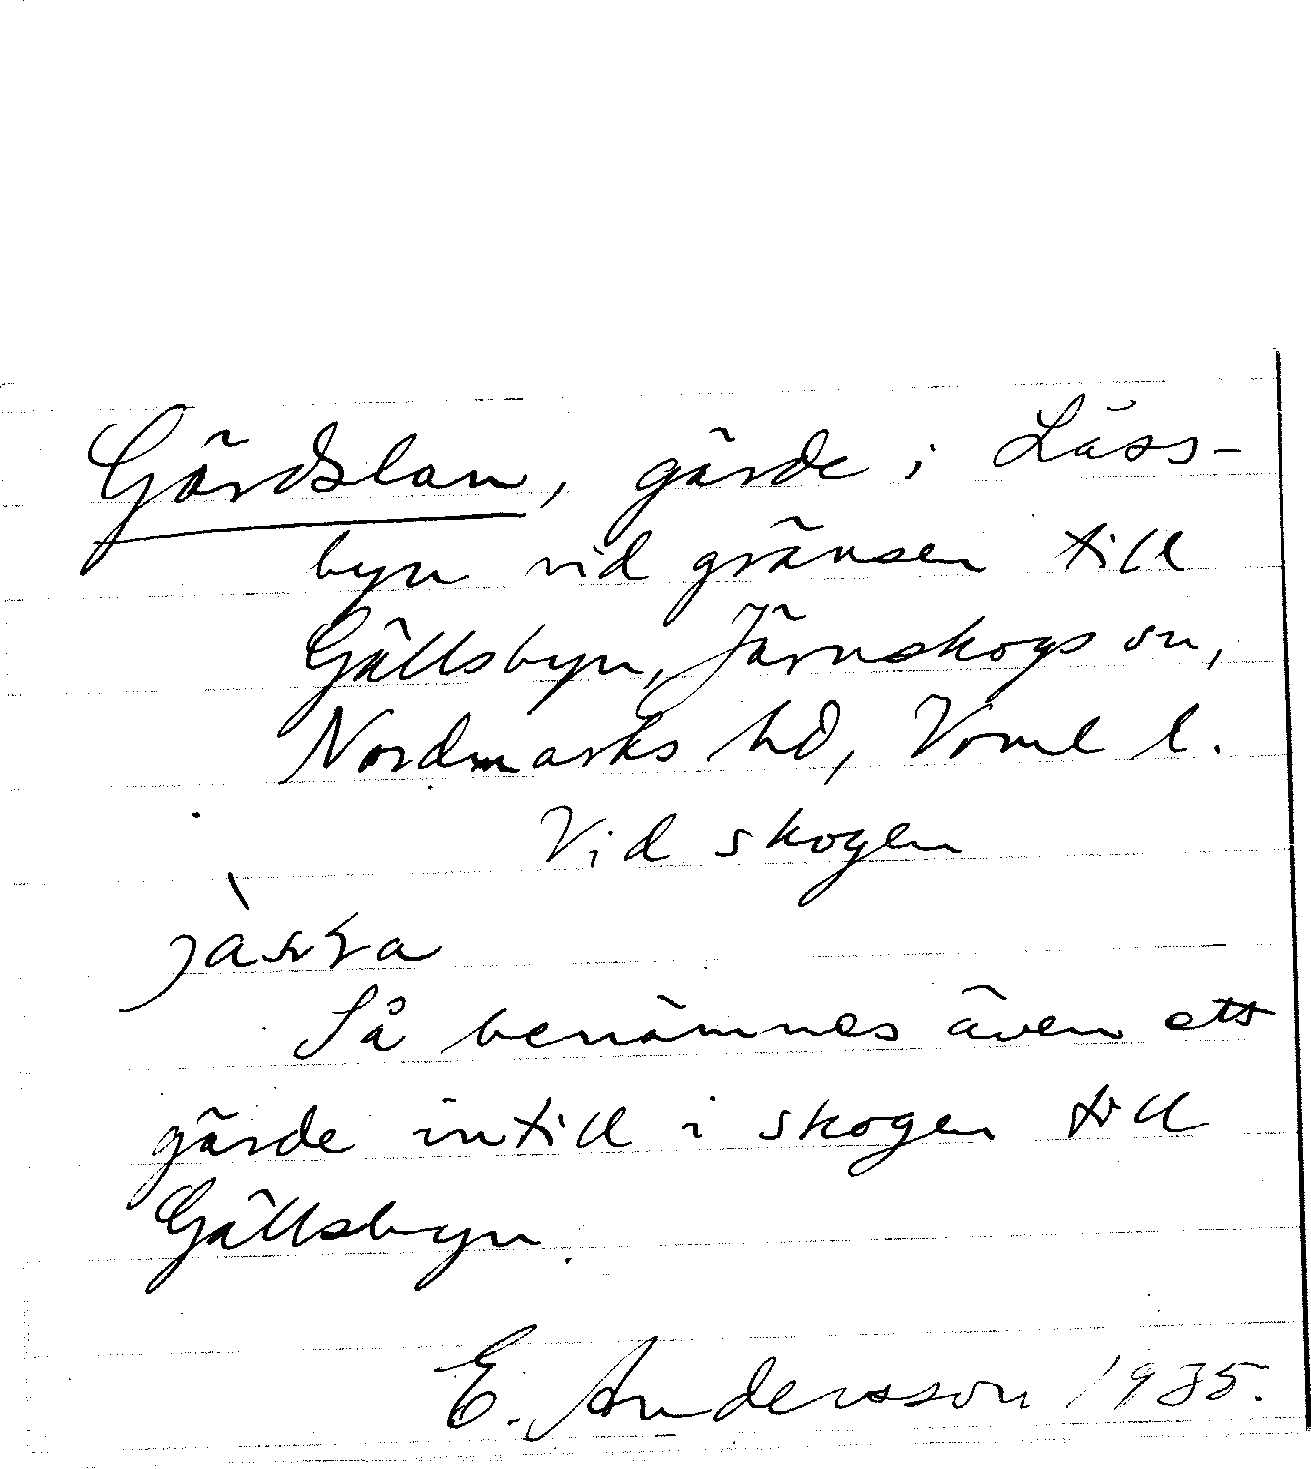 Gärdslan, gärde i Läss-
byn vid gränsen till
Gällsbyn, Järnskogs sn,
Nordmarks hd, Vrml l.
Vid skogen
Så benämnes även ett
gärde intill i skogen till
Gällsbyn.
E. Andersson 1935.